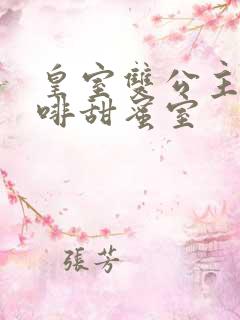 皇室雙公主
啡甜蜜室
張芳